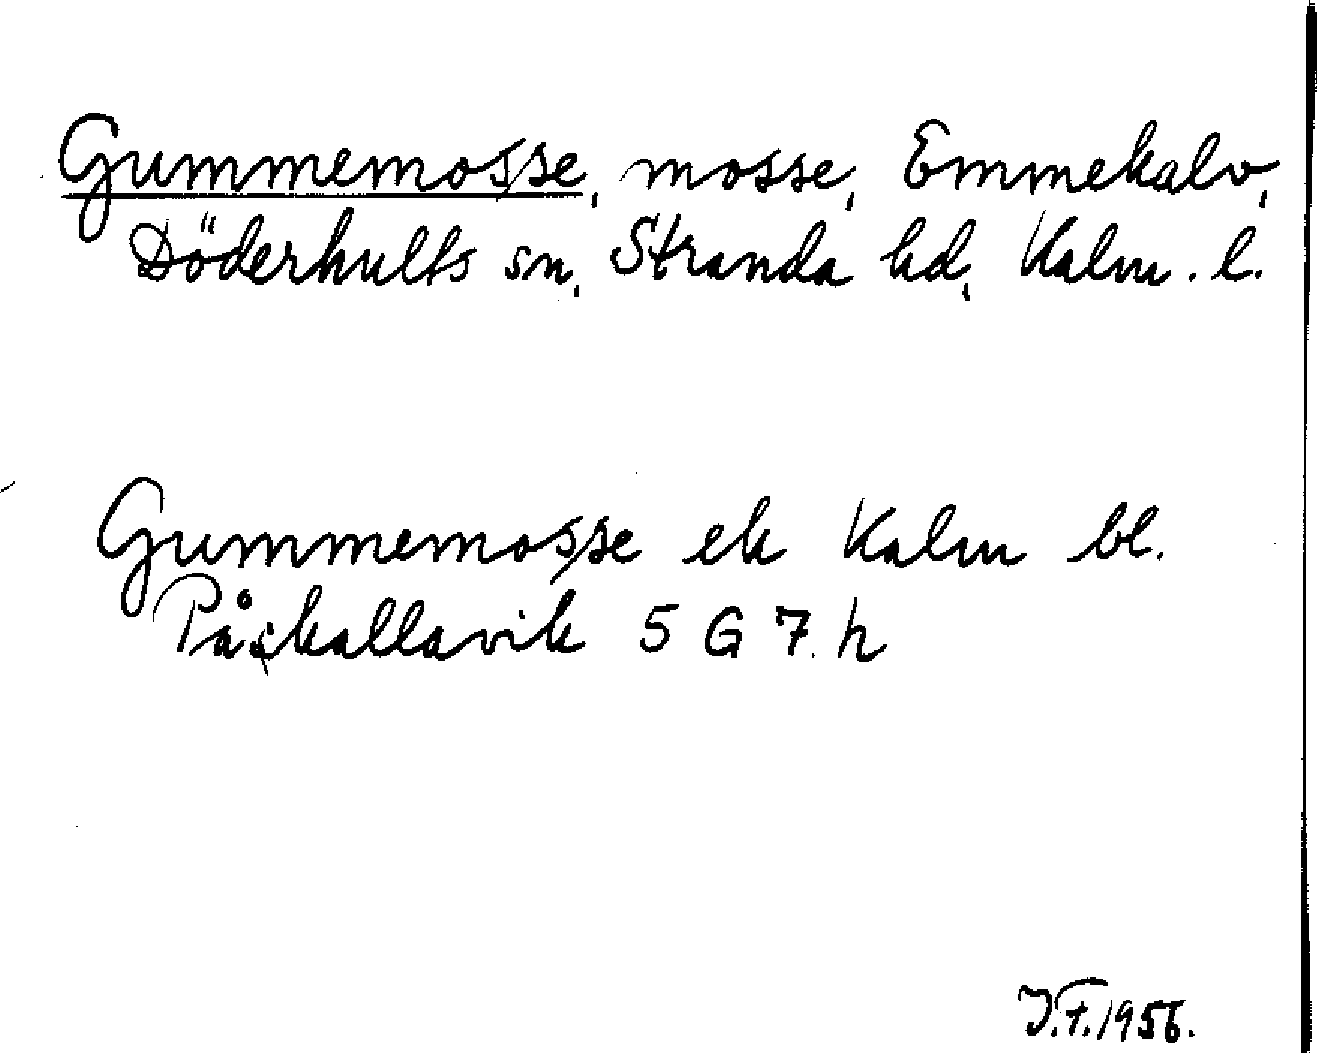 Gummemosse, mosse, Emmekalv,
Döderhults sn, Stranda hd, Kalm. l.
Gummemosse ek Kalm bl.
Påskallavik 5 G 7 h
J.F. 1956.